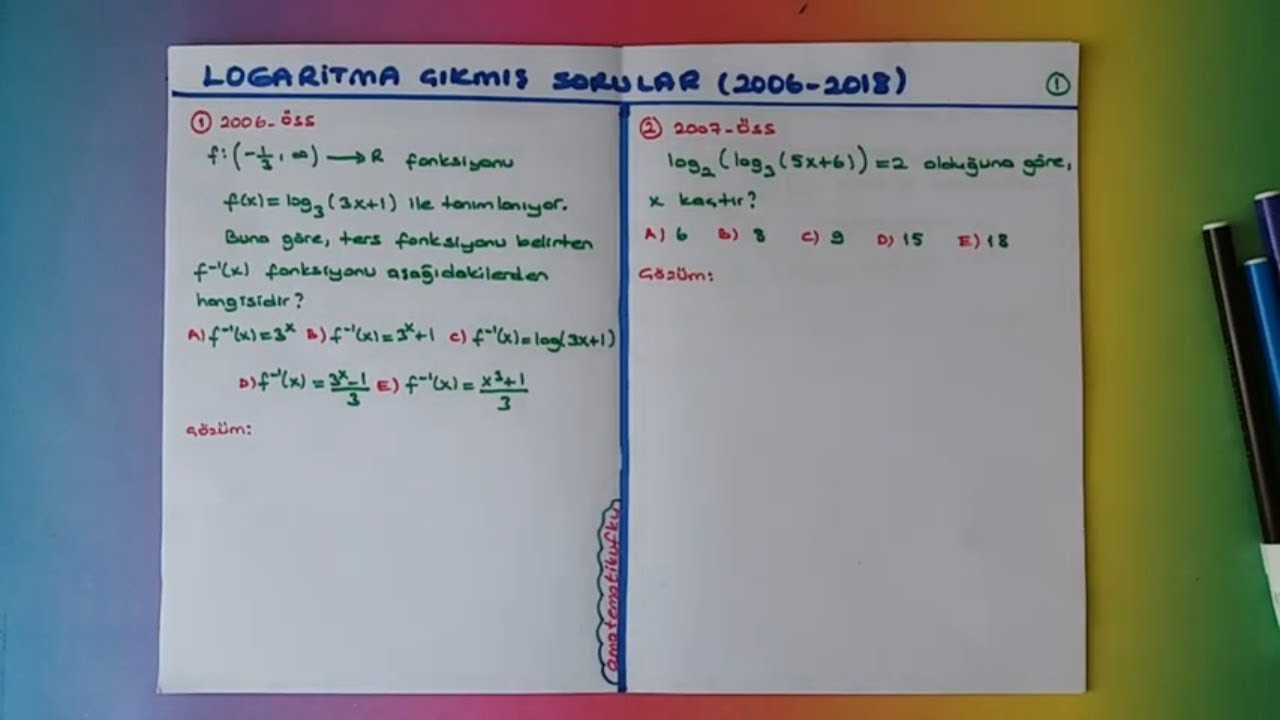 LOGARİTMA ÇIKMIŞ SORULAR (2006-2018)
①
① 2006-ÖSS
f: (-1/3, ∞) → R fonksiyonu
f(x)=log₃(3x+1) ile tanımlanıyor.
Buna göre, ters fonksiyonu belirten
f⁻¹(x) fonksiyonu aşağıdakilerden
hangisidir?
A) f⁻¹(x)=3ˣ B) f⁻¹(x)=3ˣ+1 C) f⁻¹(x)=log(3x+1)
D) f⁻¹(x)=(3ˣ-1)/3 E) f⁻¹(x)=(x³+1)/3
Çözüm:
amatematikufku
② 2007-ÖSS
log₂(log₃(5x+6))=2 olduğuna göre,
x kaçtır?
A) 6 B) 8 C) 9 D) 15 E) 18
Çözüm: